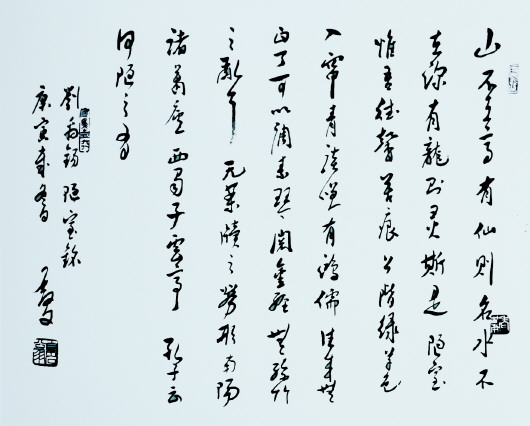 山不在高有仙则名水不
在深有龍則灵斯是陋室
惟吾德馨苔痕上階绿草色
入帘青談笑有鴻儒往来無
白丁可以调素琴阅金经無丝竹
之亂耳无案牍之劳形南阳
諸葛廬西蜀子雲亭孔子云
何陋之有
劉禹錫陋室銘
庚寅歲